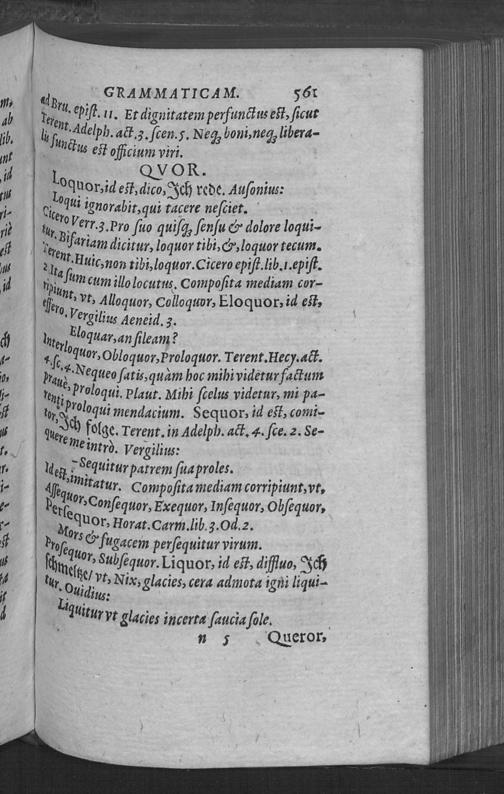 GRAMMATICAM. 561
ad Bru. epiſt. 11. Et dignitatem perfunctus eſt, ſicut
Terent. Adelph. act. 3. ſcen. 5. Neq; boni, neq; libera-
lis functus eſt officium viri.
QVOR.
Loquor, id eſt, dico, Jch rede. Auſonius:
Loqui ignorabit, qui tacere neſciet.
Cicero Verr. 3. Pro ſuo quiſq; ſenſu & dolore loqui-
tur. Bifariam dicitur, loquor tibi, &, loquor tecum.
Terent. Huic, non tibi, loquor. Cicero epiſt. lib. 1. epiſt.
2. Ita ſum cum illo locutus. Compoſita mediam cor-
ripiunt, vt, Alloquor, Colloquor, Eloquor, id eſt,
effero. Vergilius Aeneid. 3.
Eloquar, an ſileam?
Interloquor, Obloquor, Proloquor. Terent. Hecy. act.
4. ſc. 4. Nequeo ſatis, quàm hoc mihi videtur factum
prauè, proloqui. Plaut. Mihi ſcelus videtur, mi pa-
renti proloqui mendacium. Sequor, id eſt, comi-
tor, Jch folge. Terent. in Adelph. act. 4. ſce. 2. Se-
quere me intrò. Vergilius:
– Sequitur patrem ſua proles.
Id eſt, imitatur. Compoſita mediam corripiunt, vt,
Aſſequor, Conſequor, Exequor, Inſequor, Obſequor,
Perſequor, Horat. Carm. lib. 3. Od. 2.
Mors & fugacem perſequitur virum.
Proſequor, Subſequor. Liquor, id eſt, diffluo, Jch
ſchmeltze/ vt, Nix, glacies, cera admota igni liqui-
tur. Ouidius:
Liquitur vt glacies incerta ſaucia ſole.
n 5 Queror,